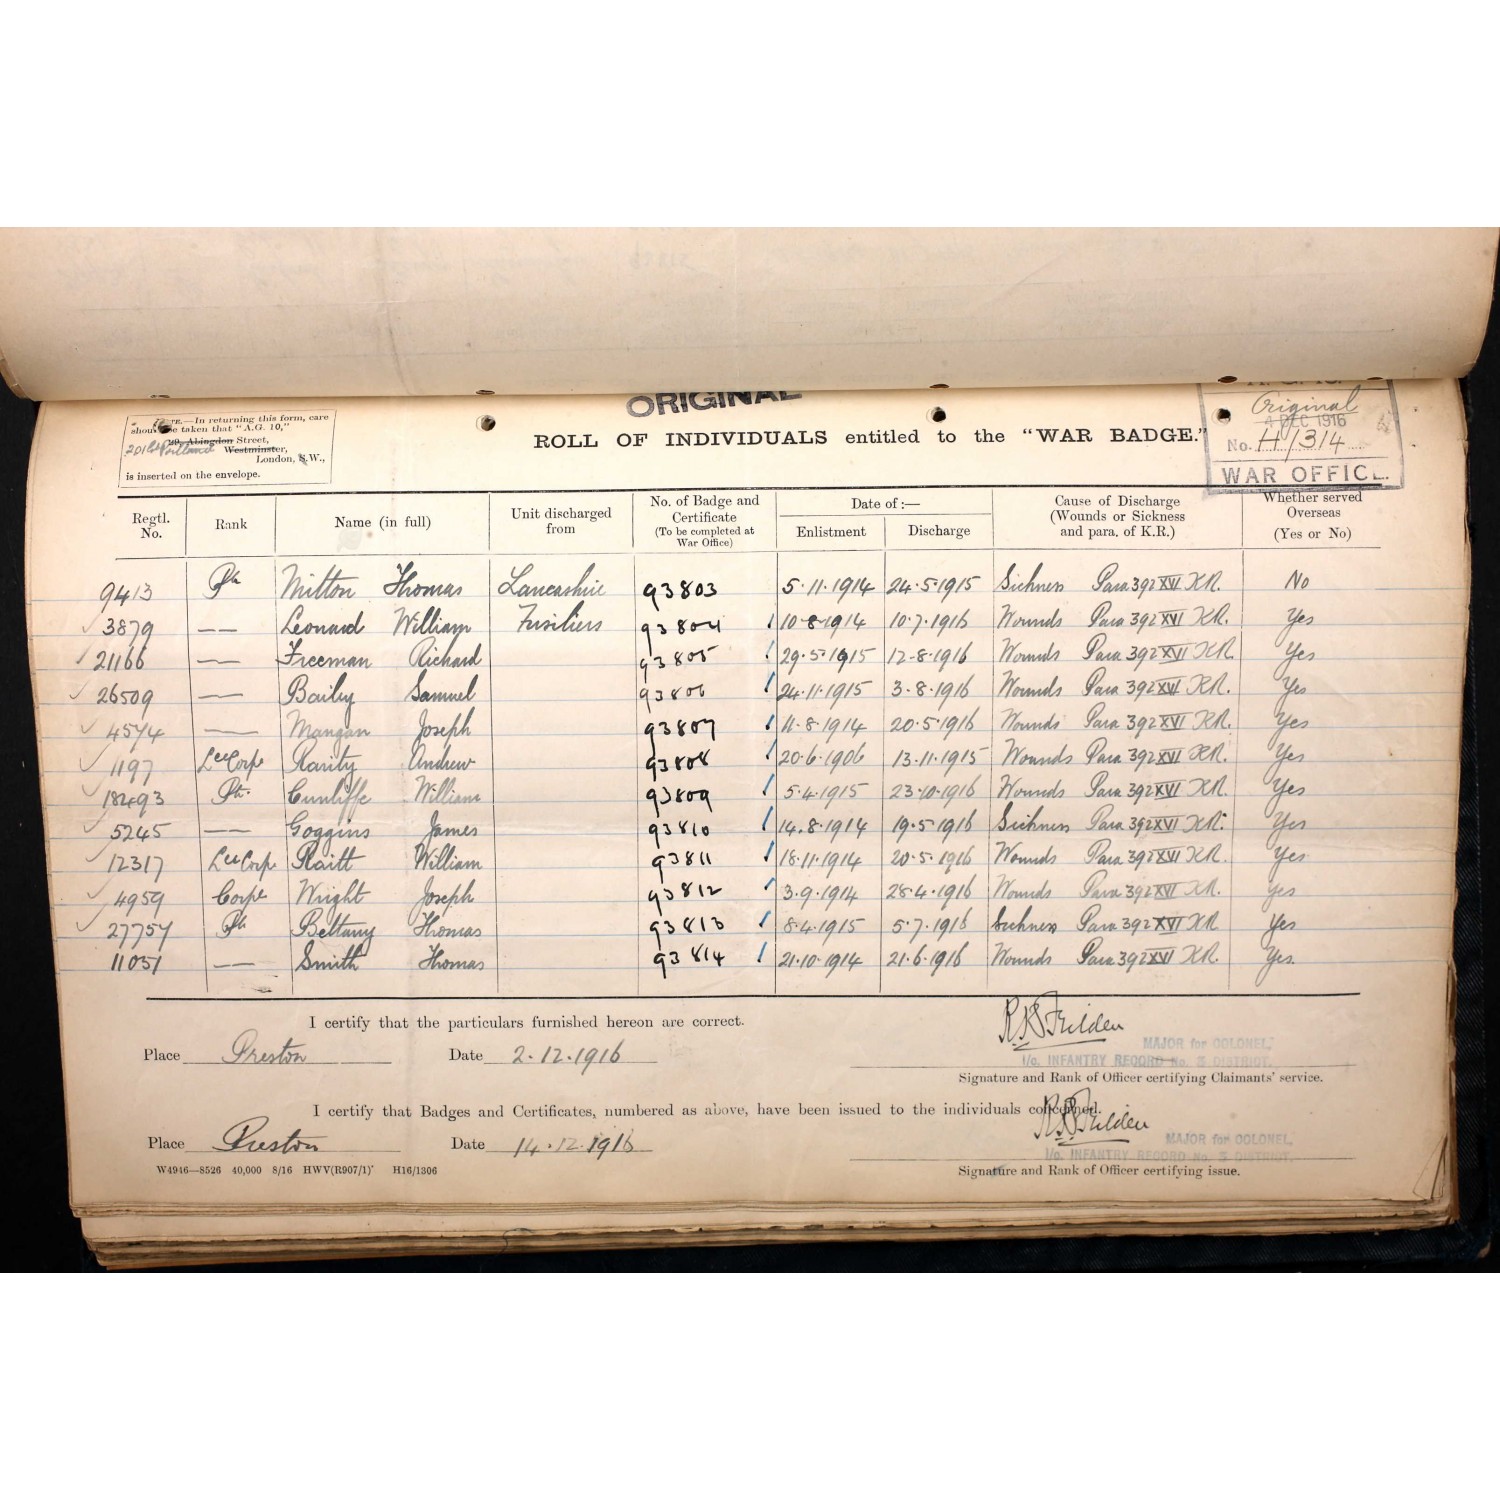 ORIGINAL
NOTE.—In returning this form, care
should be taken that "A.G. 10,"
29, Abingdon Street,
Westminster,
London, S.W.,
is inserted on the envelope.
ROLL OF INDIVIDUALS entitled to the "WAR BADGE."
Original
4 DEC 1916
No. H/314
WAR OFFICE.
Regtl. No. Rank Name (in full) Unit discharged from No. of Badge and Certificate (To be completed at War Office) Date of :— Enlistment Discharge Cause of Discharge (Wounds or Sickness and para. of K.R.) Whether served Overseas (Yes or No)
9413 Pte Mitton Thomas Lancashire 93803 5.11.1914 24.5.1915 Sickness Para 392 XVI KR. No
3879 — — Leonard William Fusiliers 93804 10.8.1914 10.7.1916 Wounds Para 392 XVI KR. Yes
21166 — — Freeman Richard 93805 29.5.1915 12.8.1916 Wounds Para 392 XVI KR. Yes
26509 — — Bailey Samuel 93806 24.11.1915 3.8.1916 Wounds Para 392 XVI KR. Yes
4574 — — Mangan Joseph 93807 11.8.1914 20.5.1916 Wounds Para 392 XVI KR. Yes
1197 Lce Corpl Rarity Andrew 93808 20.6.1906 13.11.1915 Wounds Para 392 XVI KR. Yes
18493 Pte. Cunliffe William 93809 5.4.1915 23.10.1916 Wounds Para 392 XVI KR. Yes
5245 — — Goggins James 93810 14.8.1914 19.5.1916 Sickness Para 392 XVI KR. Yes
12317 Lce Corpl Raitt William 93811 18.11.1914 20.5.1916 Wounds Para 392 XVI KR. Yes
4959 Corpl Wright Joseph 93812 3.9.1914 28.4.1916 Wounds Para 392 XVI KR. Yes
27757 Pte Bettany Thomas 93813 8.4.1915 5.7.1916 Sickness Para 392 XVI KR. Yes
11051 — — Smith Thomas 93814 21.10.1914 21.6.1916 Wounds Para 392 XVI KR. Yes.
I certify that the particulars furnished hereon are correct.
Place Preston Date 2.12.1916
MAJOR for COLONEL,
i/c. INFANTRY RECORD No. 3 DISTRICT.
Signature and Rank of Officer certifying Claimants' service.
I certify that Badges and Certificates, numbered as above, have been issued to the individuals concerned.
Place Preston Date 14.12.1916
MAJOR for COLONEL,
i/c. INFANTRY RECORD No. 3 DISTRICT.
W4946—8526 40,000 8/16 HWV(R907/1) H16/1306
Signature and Rank of Officer certifying issue.